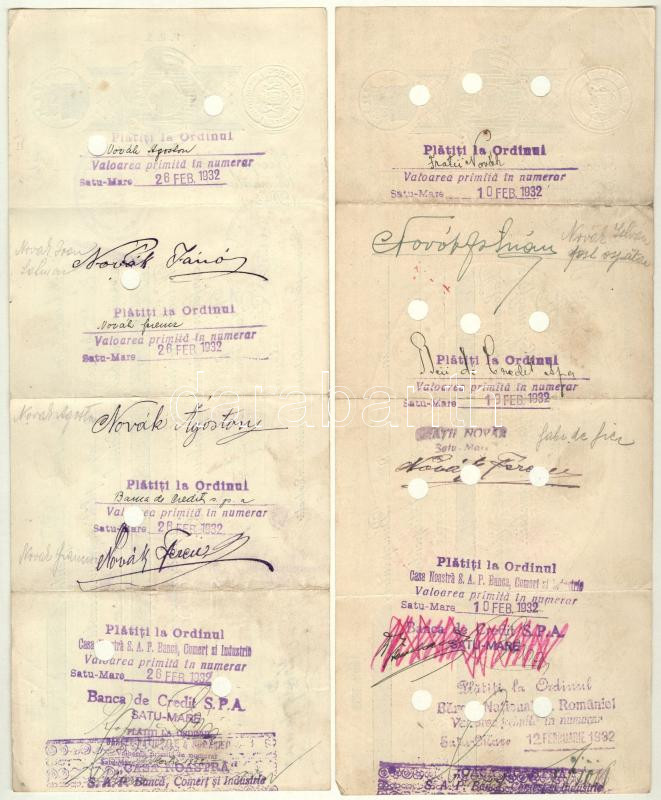 Plătiți la Ordinul
Novák Agoston
Valoarea primită în numerar
Satu-Mare 26 FEB. 1932
Novák János
Plătiți la Ordinul
Novák Ferenc
Valoarea primită în numerar
Satu-Mare 26 FEB. 1932
Novák Ágoston
Plătiți la Ordinul
Banca de Credit s.p.a
Valoarea primită în numerar
Satu-Mare 26 FEB. 1932
Novák Ferenc
Plătiți la Ordinul
Casa Noastră S. A. P. Bancă, Comerț și Industrie
Valoarea primită în numerar
Satu-Mare 26 FEB. 1932
Banca de Credit S.P.A.
SATU-MARE
PLĂTIȚI LA ORDINUL
"CASA NOASTRĂ"
S. A. P. Bancă, Comerț și Industrie
Plătiți la Ordinul
Frații Novák
Valoarea primită în numerar
Satu-Mare 10 FEB. 1932
Novák
Plătiți la Ordinul
de Credit spa
Valoarea primită în numerar
Satu-Mare 10 FEB. 1932
FRAȚII NOVÁK
Satu-Mare
Novák Ferenc
Plătiți la Ordinul
Casa Noastră S. A. P. Bancă, Comerț și Industrie
Valoarea primită în numerar
Satu-Mare 10 FEB. 1932
Banca de Credit S.P.A.
SATU-MARE
Plătiți la Ordinul
Băncei Naționale a României
Valoarea primită în numerar
Satu-Mare 12 FEBRUARIE 1932
"CASA NOASTRĂ"
S. A. P. Bancă, Comerț și Industrie
darabanth